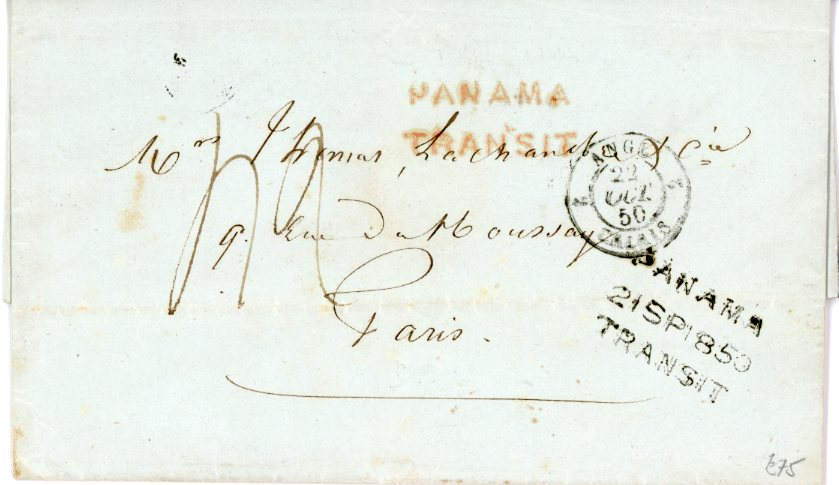 PANAMA
TRANSIT
Mrs Thomas, Lachambre & Cie
9. Rue du Houssay
Paris.
ANGL.
2 22 2
OCT.
50
CALAIS
PANAMA
21SP1850
TRANSIT
£75